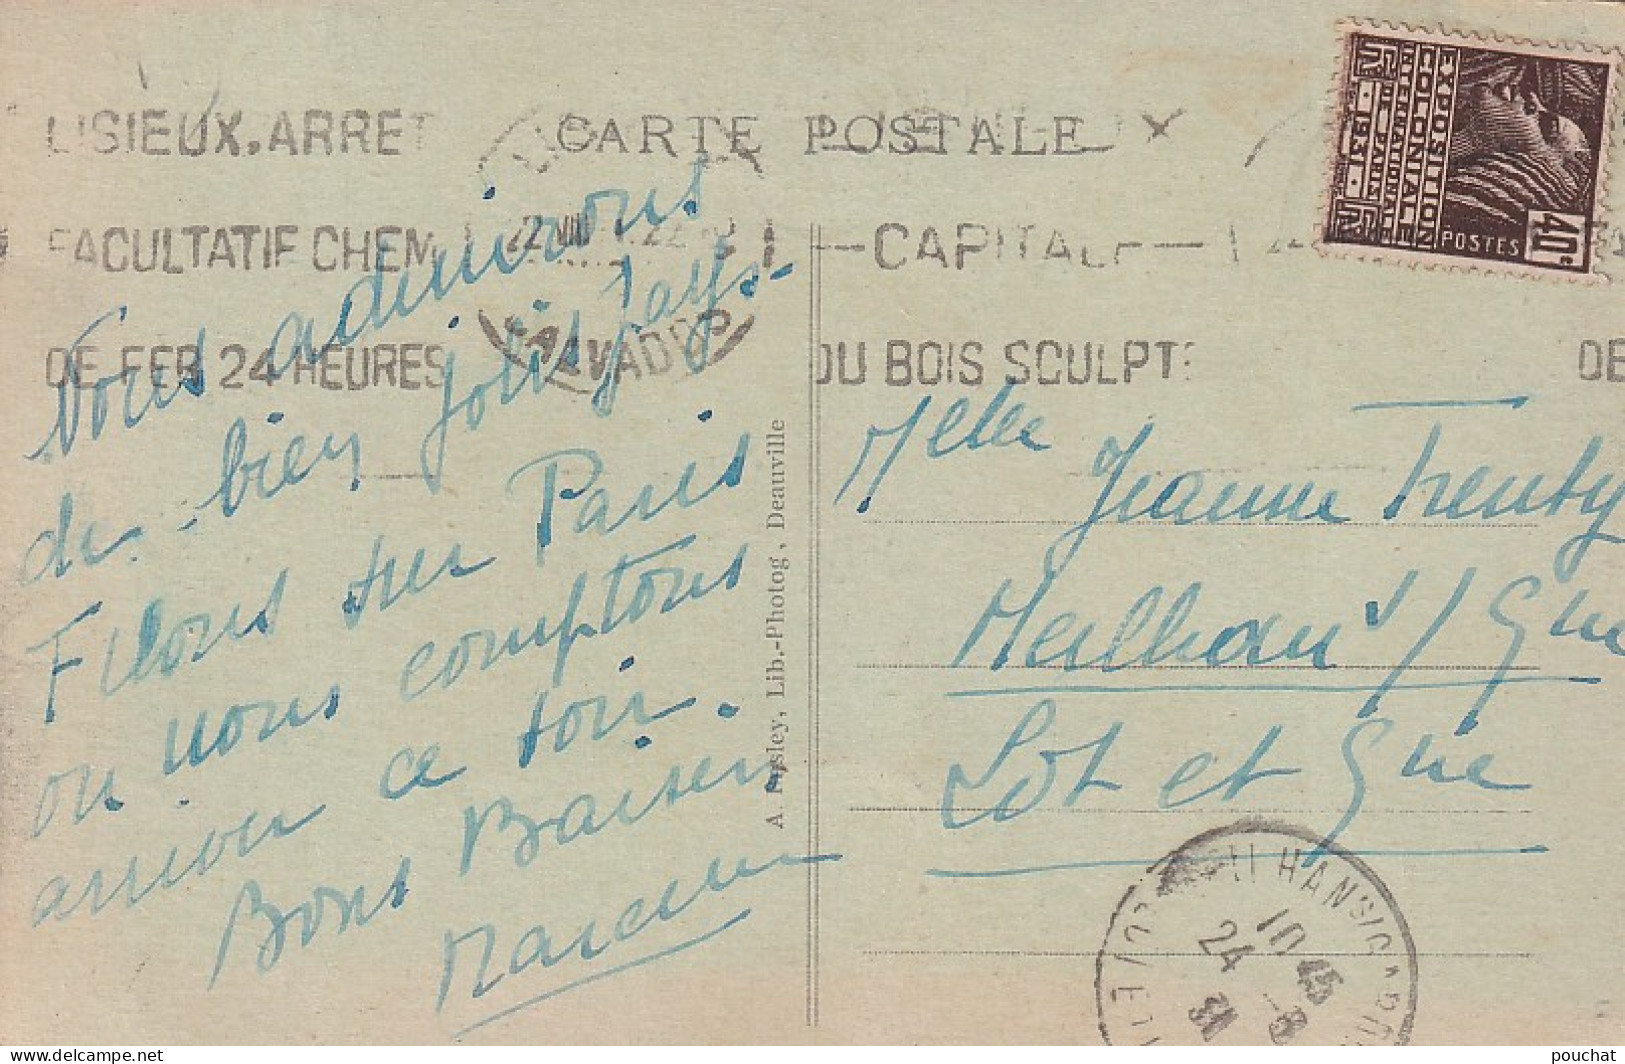 CARTE POSTALE
LISIEUX. ARRET
FACULTATIF CHEM
DE FER 24 HEURES
22 VIII
CALVADOS
CAPITALE
DU BOIS SCULPT
DE
EXPOSITION
COLONIALE
INTERNATIONALE
DE PARIS
1931
POSTES
40c
Nous admirons
de bien jolis pays.
Filons sur Paris
ou nous comptons
arriver ce soir.
Bons Baisers
A. Parsley, Lib.-Photog, Deauville
Melle
Jeanne
Meilhan s/ Gne
Lot et Gne
MEILHAN S/ G
10 45
24 -8
31
pouchat